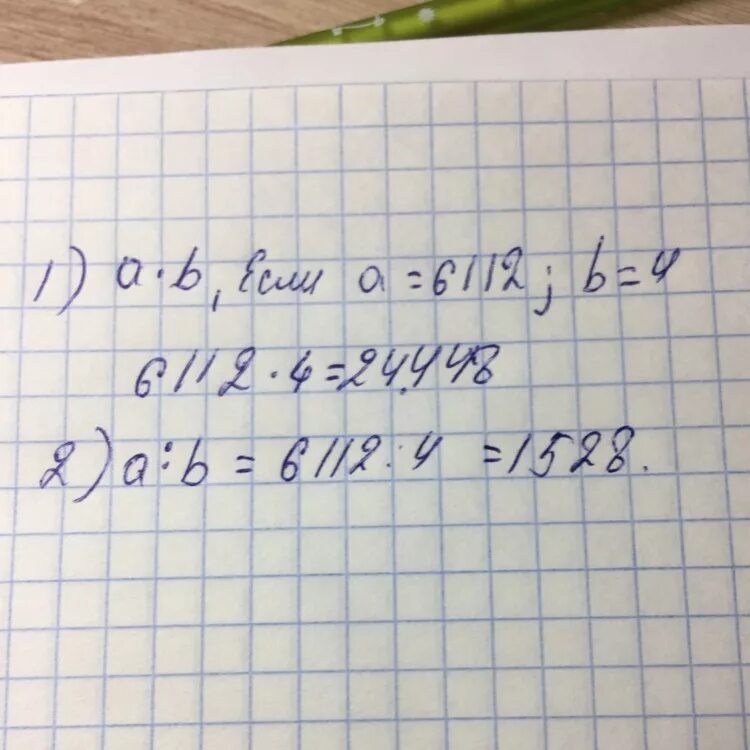 1) a·b, Если a=6112; b=4
6112·4=24.448
2) a:b = 6112:4 =1528.